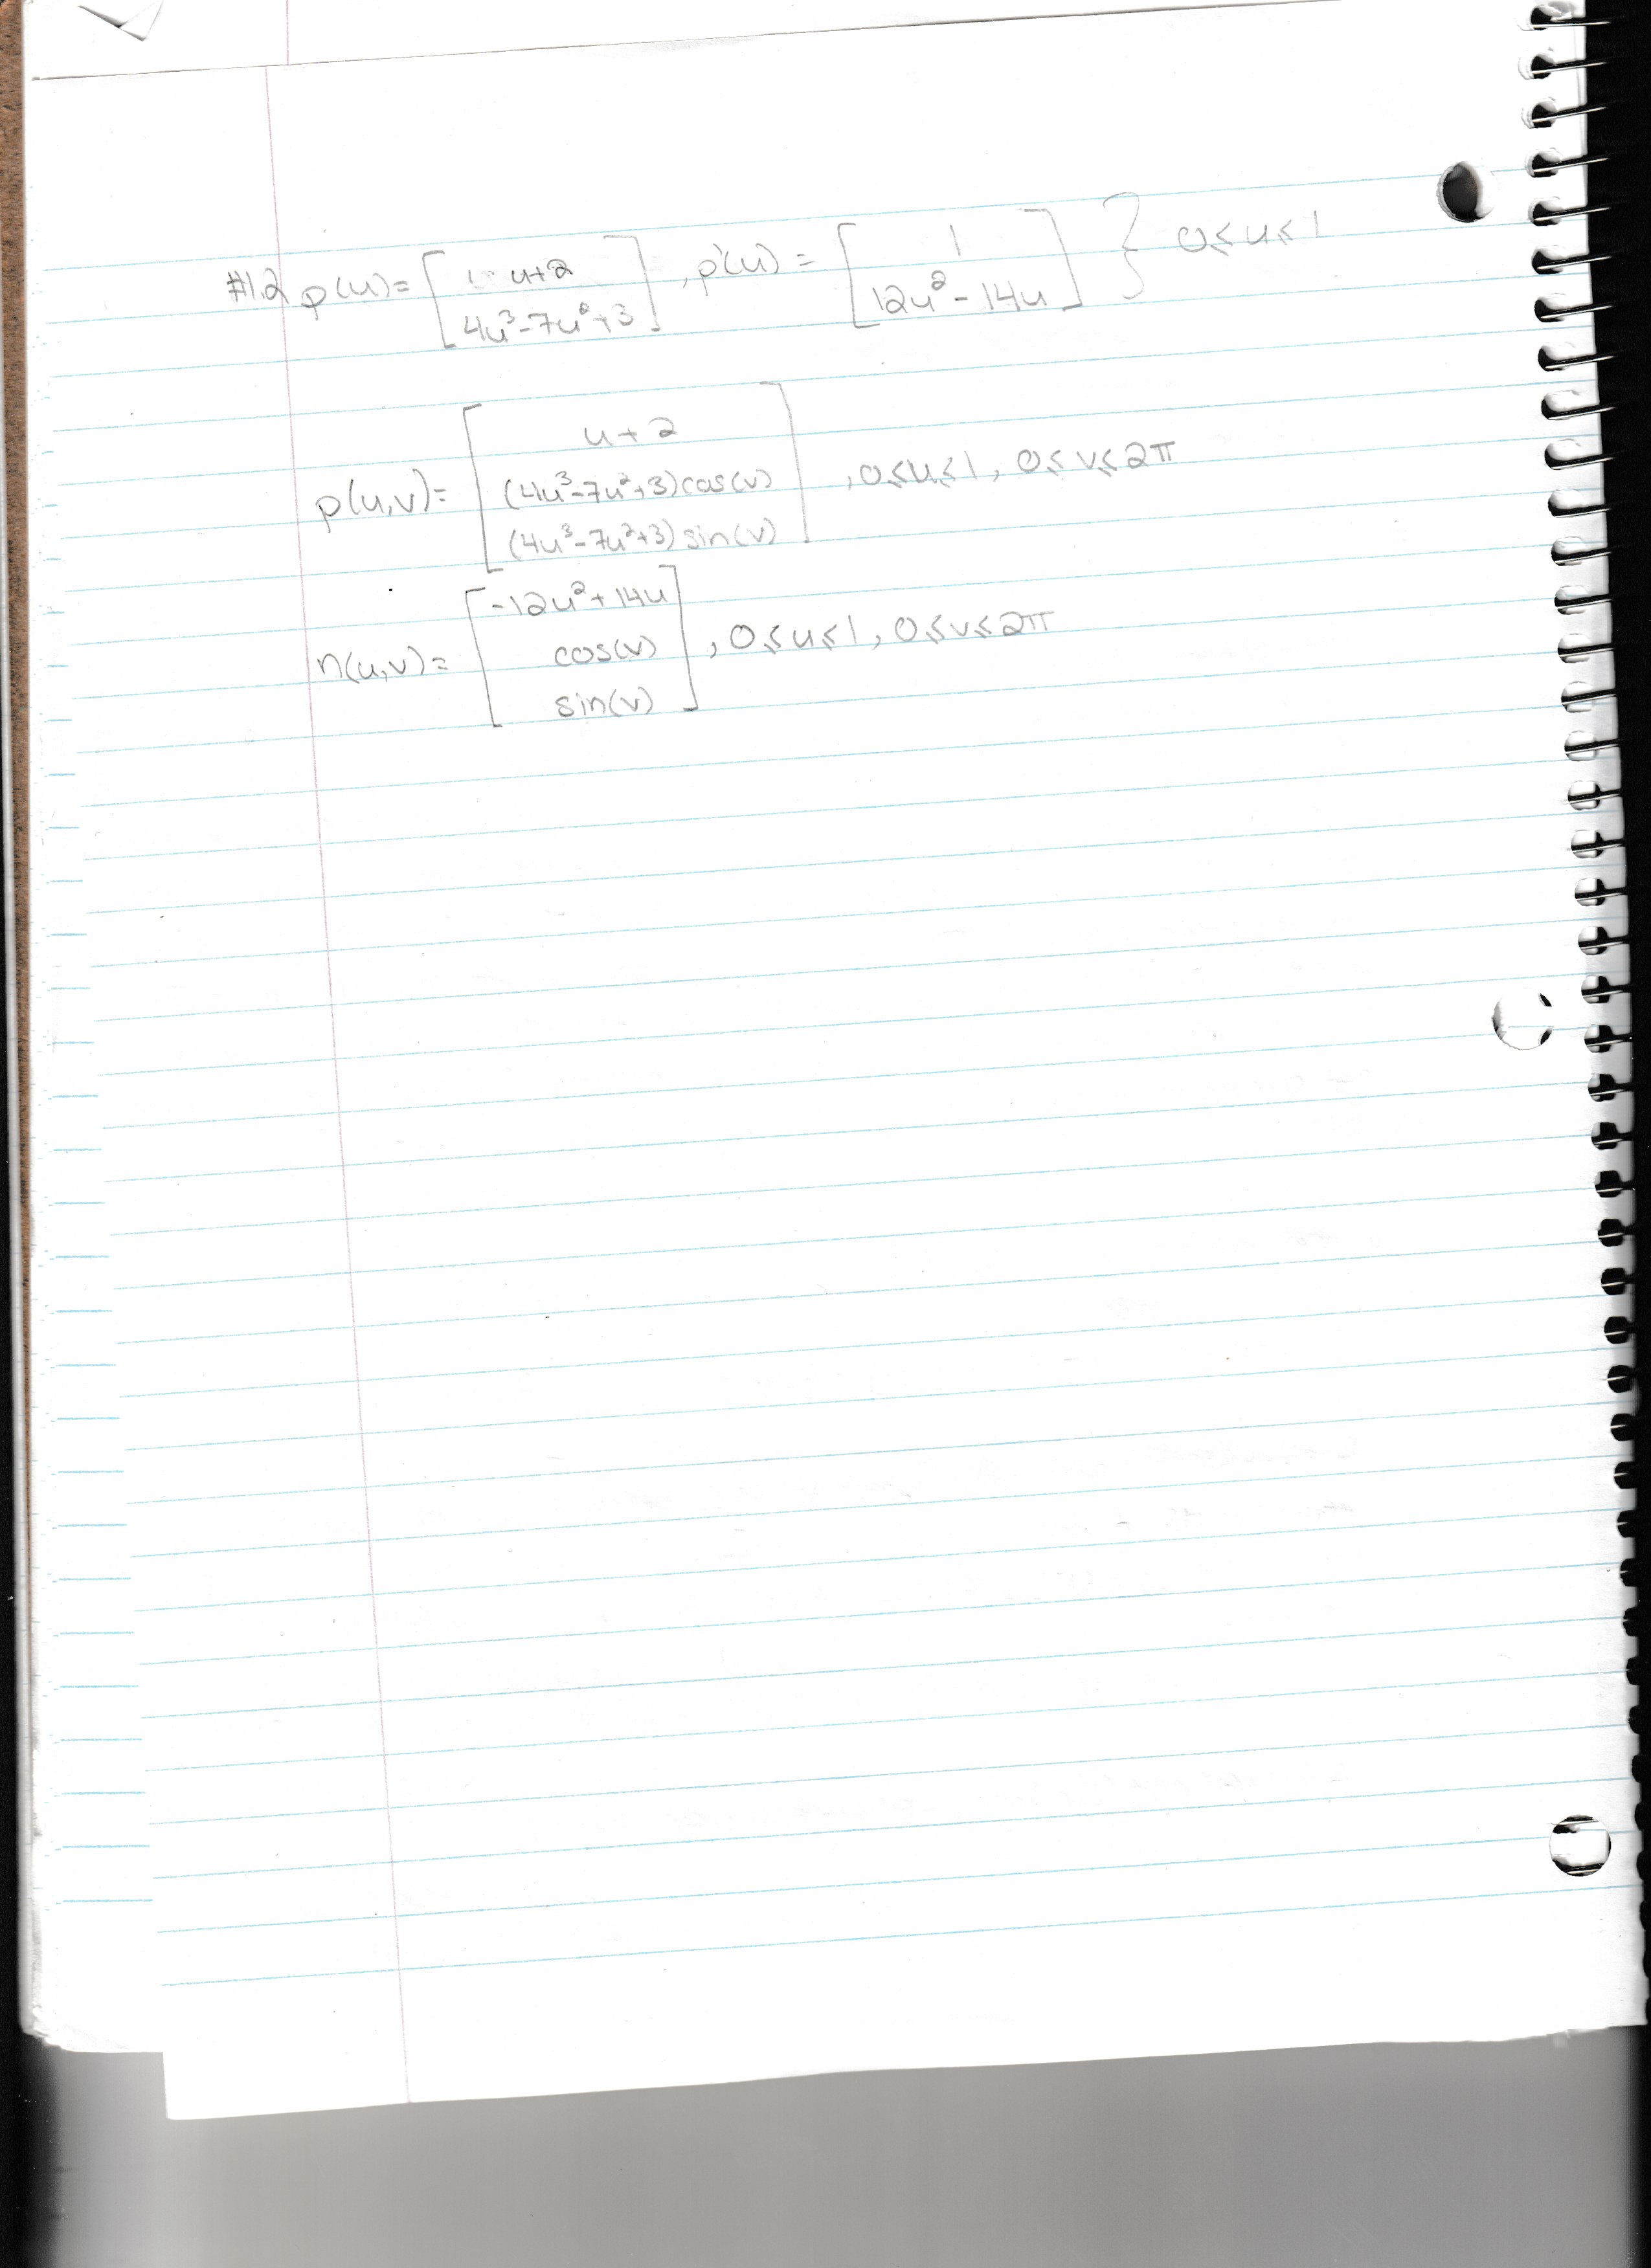 #1.2 p(u) = [ u+2 ; 4u³-7u²+3 ] , p'(u) = [ 1 ; 12u²-14u ] } 0≤u≤1
p(u,v) = [ u+2 ; (4u³-7u²+3)cos(v) ; (4u³-7u²+3)sin(v) ] , 0≤u≤1, 0≤v≤2π
n(u,v) = [ -12u²+14u ; cos(v) ; sin(v) ] , 0≤u≤1, 0≤v≤2π